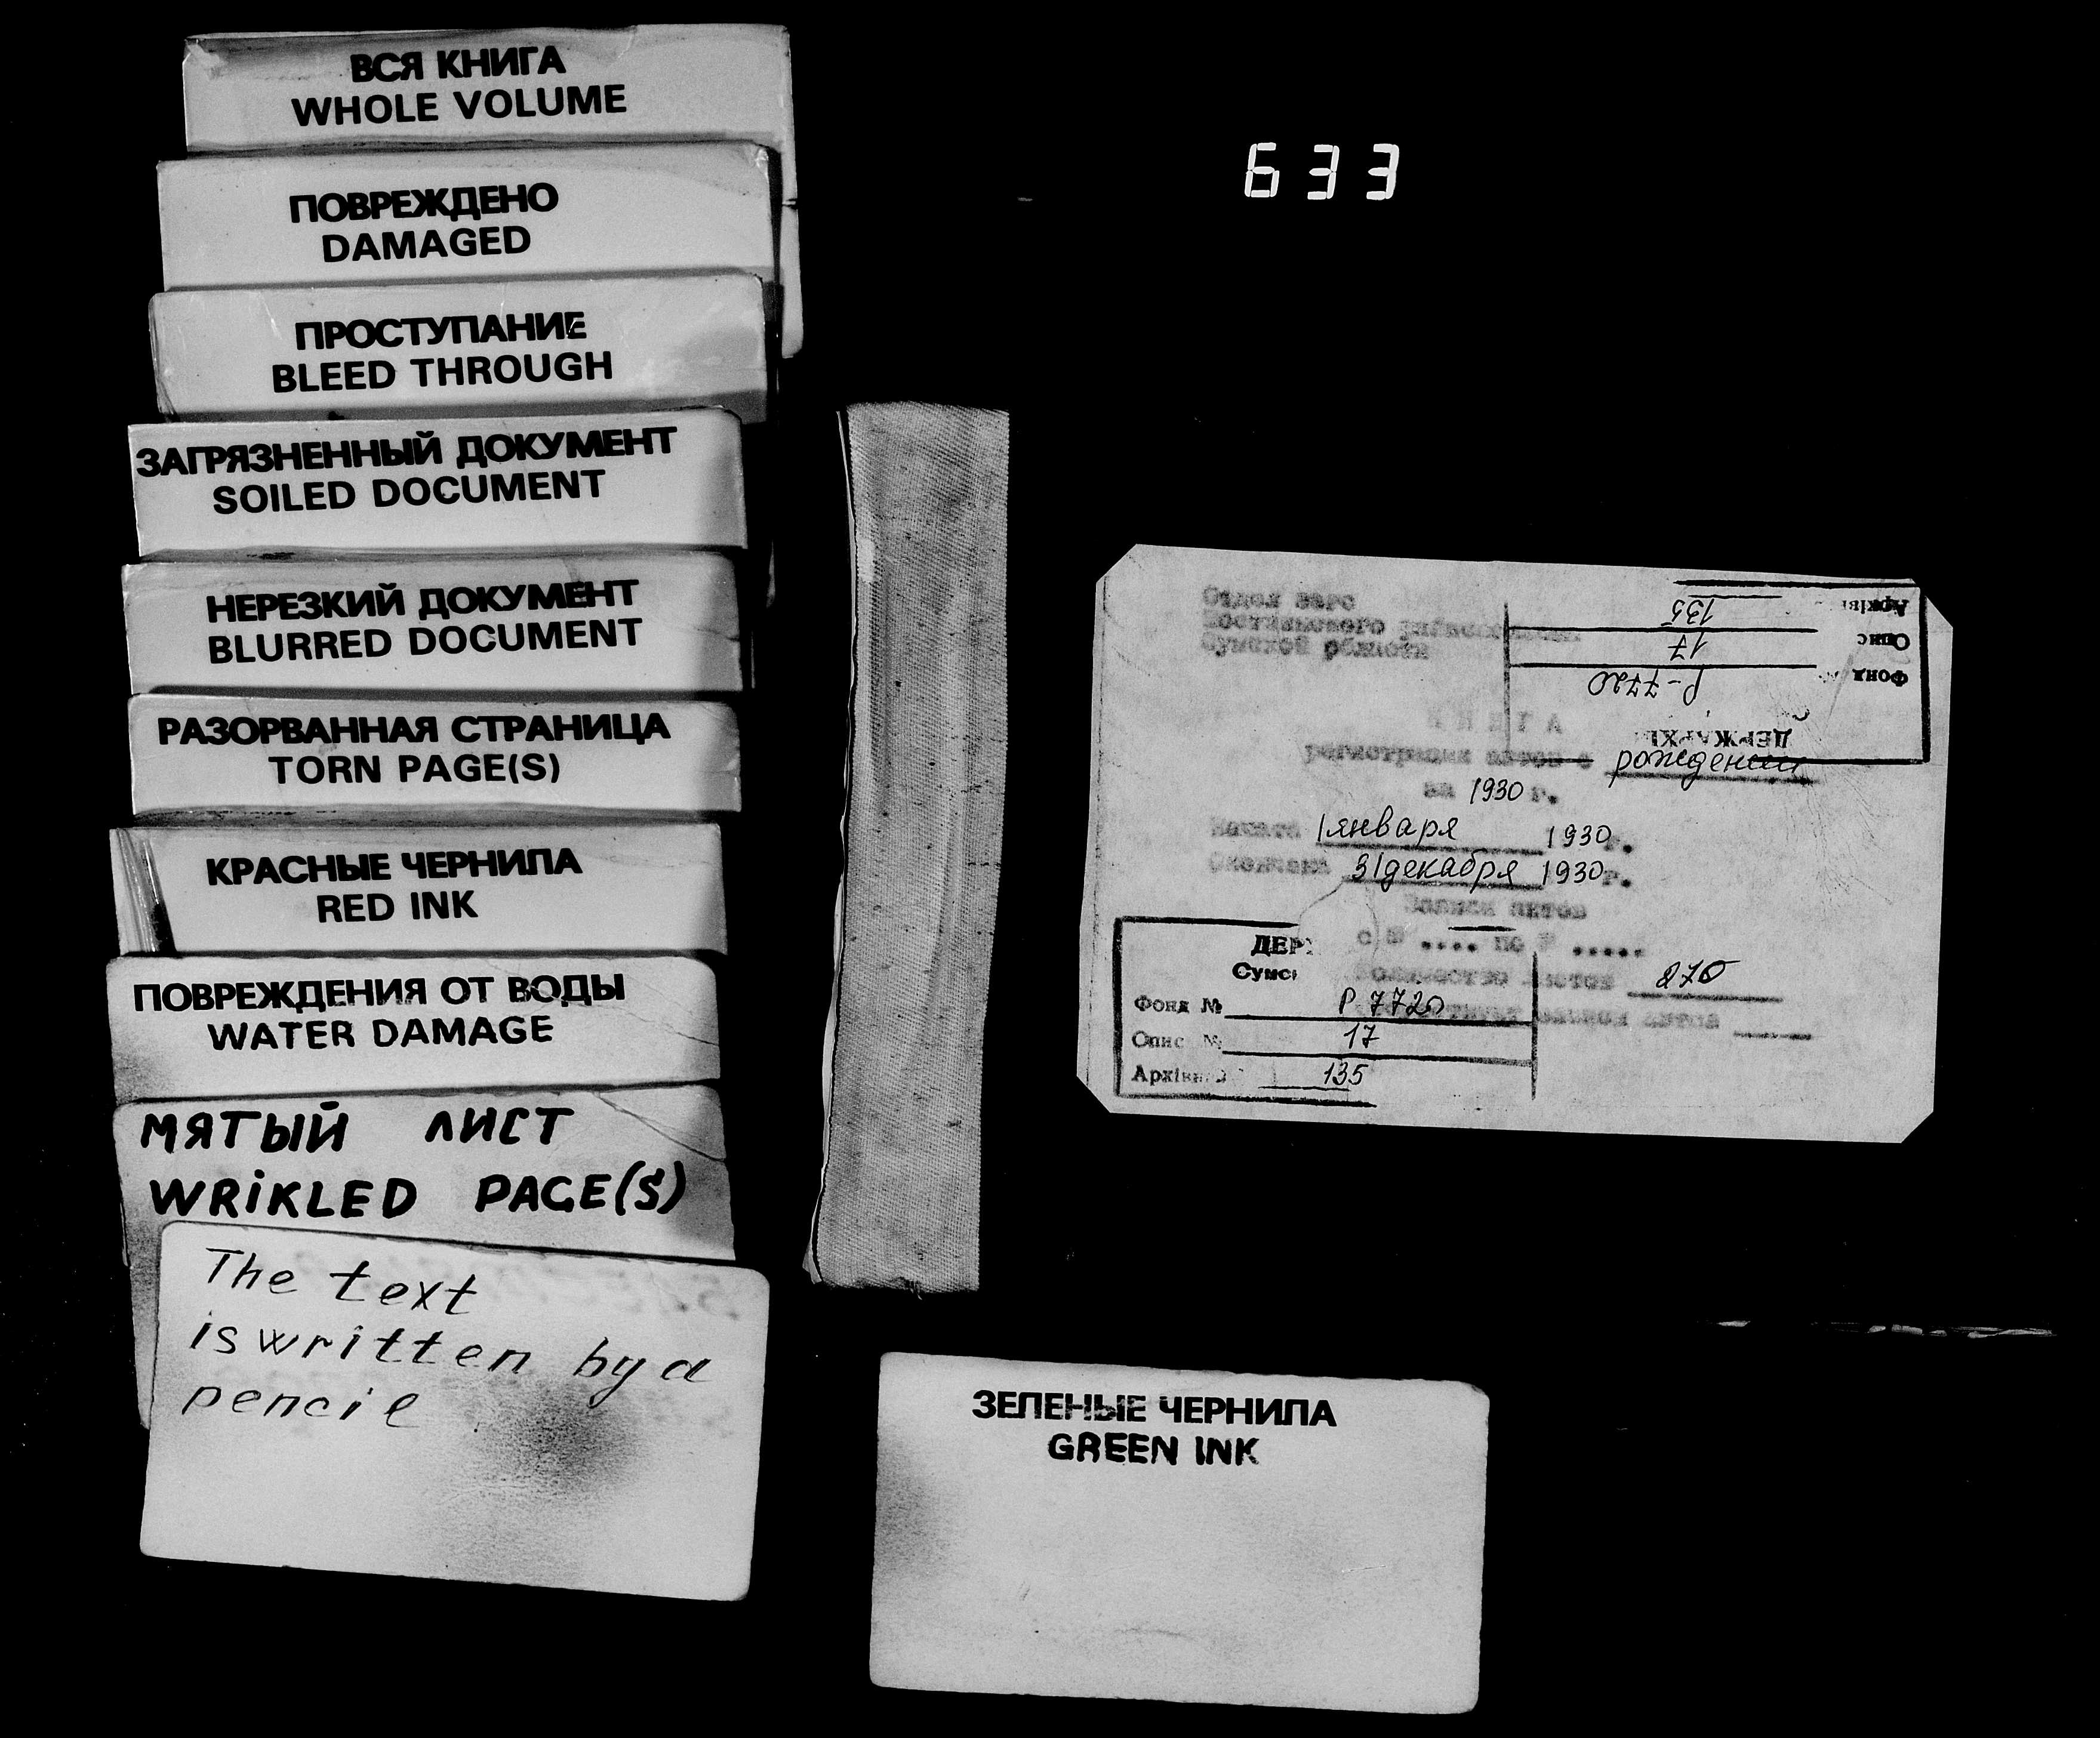 ВСЯ КНИГА
WHOLE VOLUME
ПОВРЕЖДЕНО
DAMAGED
ПРОСТУПАНИЕ
BLEED THROUGH
ЗАГРЯЗНЕННЫЙ ДОКУМЕНТ
SOILED DOCUMENT
НЕРЕЗКИЙ ДОКУМЕНТ
BLURRED DOCUMENT
РАЗОРВАННАЯ СТРАНИЦА
TORN PAGE(S)
КРАСНЫЕ ЧЕРНИЛА
RED INK
ПОВРЕЖДЕНИЯ ОТ ВОДЫ
WATER DAMAGE
МЯТЫЙ ЛИСТ
WRiKLED PAGE(S)
The text
is written by a
pencil
633
Отдел загс
Сумской области
135
Опис 17
Фонд Р-7720
КНИГА
регистрации актов о рождении
за 1930 г.
Начата 1 января 1930 г.
Окончена 31 декабря 1930 г.
Записи актов
с № .... по № .....
Количество листов 270
записи актов
ДЕР
Сумс
Фонд № Р 7720
Опис № 17
Архівн 135
ЗЕЛЕНЫЕ ЧЕРНИЛА
GREEN INK